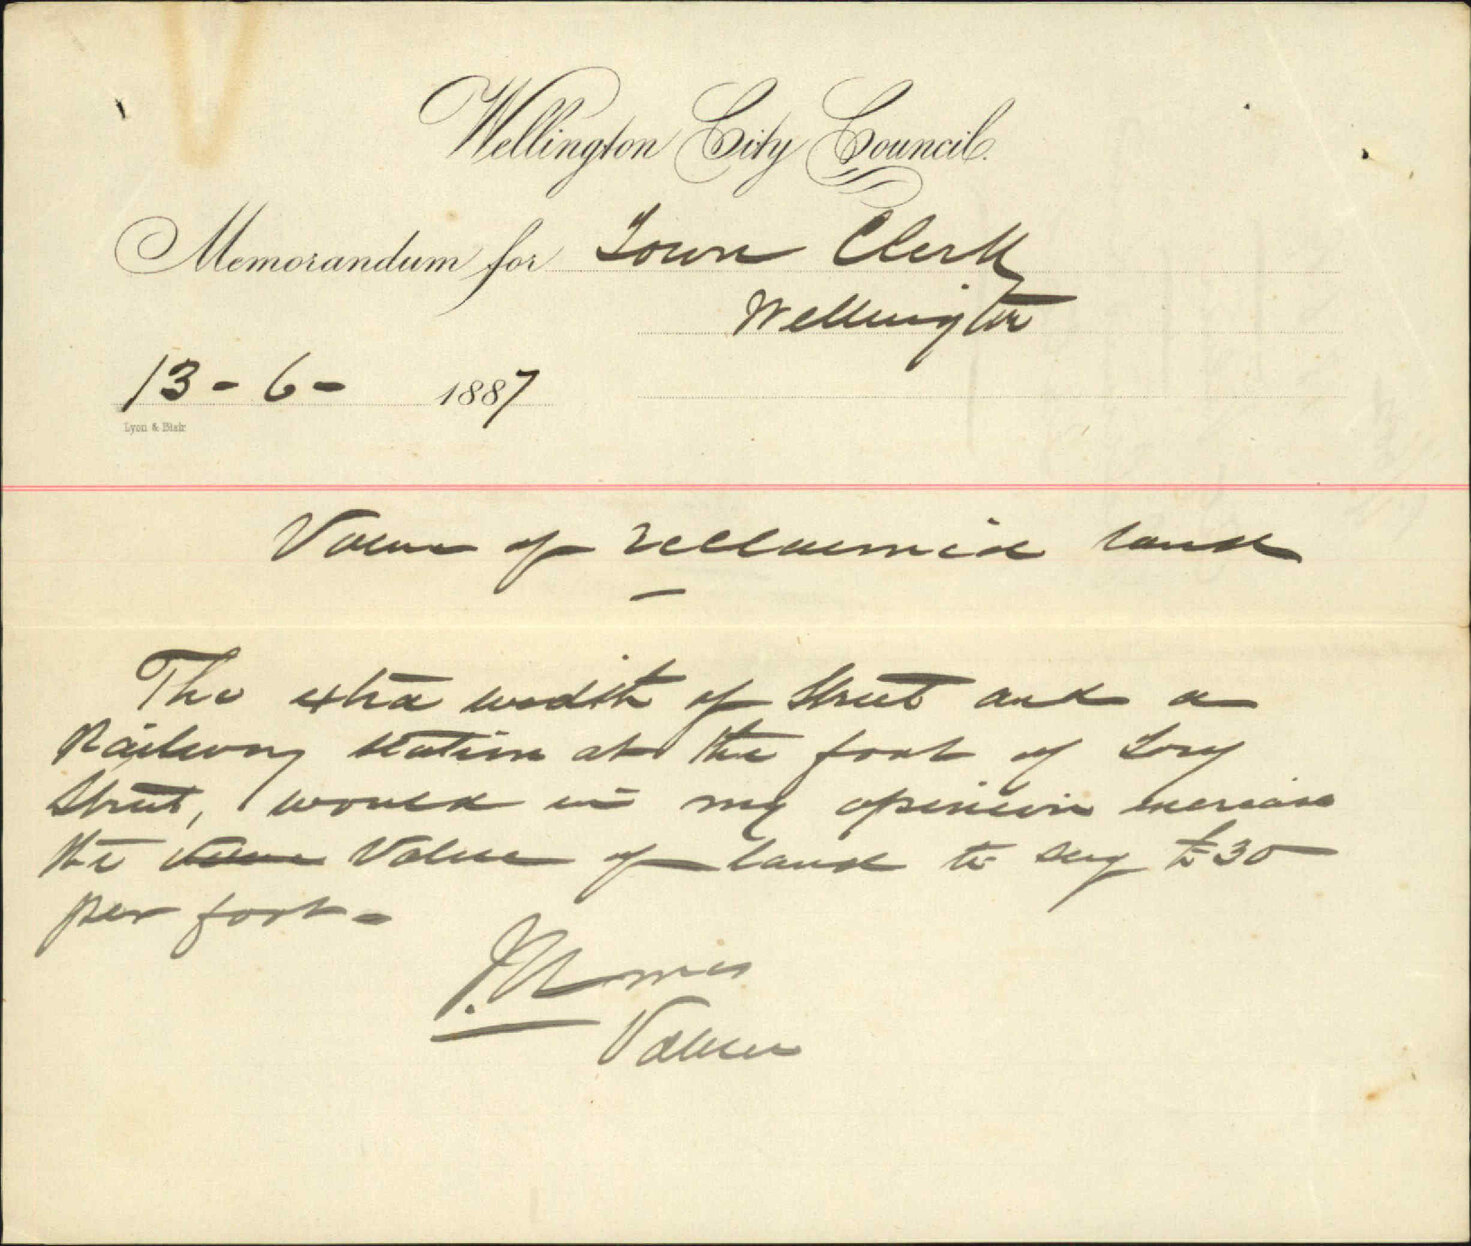 Wellington City Council.
Memorandum for Town Clerk
Wellington
13 - 6 - 1887
Lyon & Blair
Value of reclaimed land
The extra width of Street and a
Railway Station at the foot of Tory
Street, would in my opinion increase
the Value Value of land to say £30
per foot -
J. Ames
Valuer